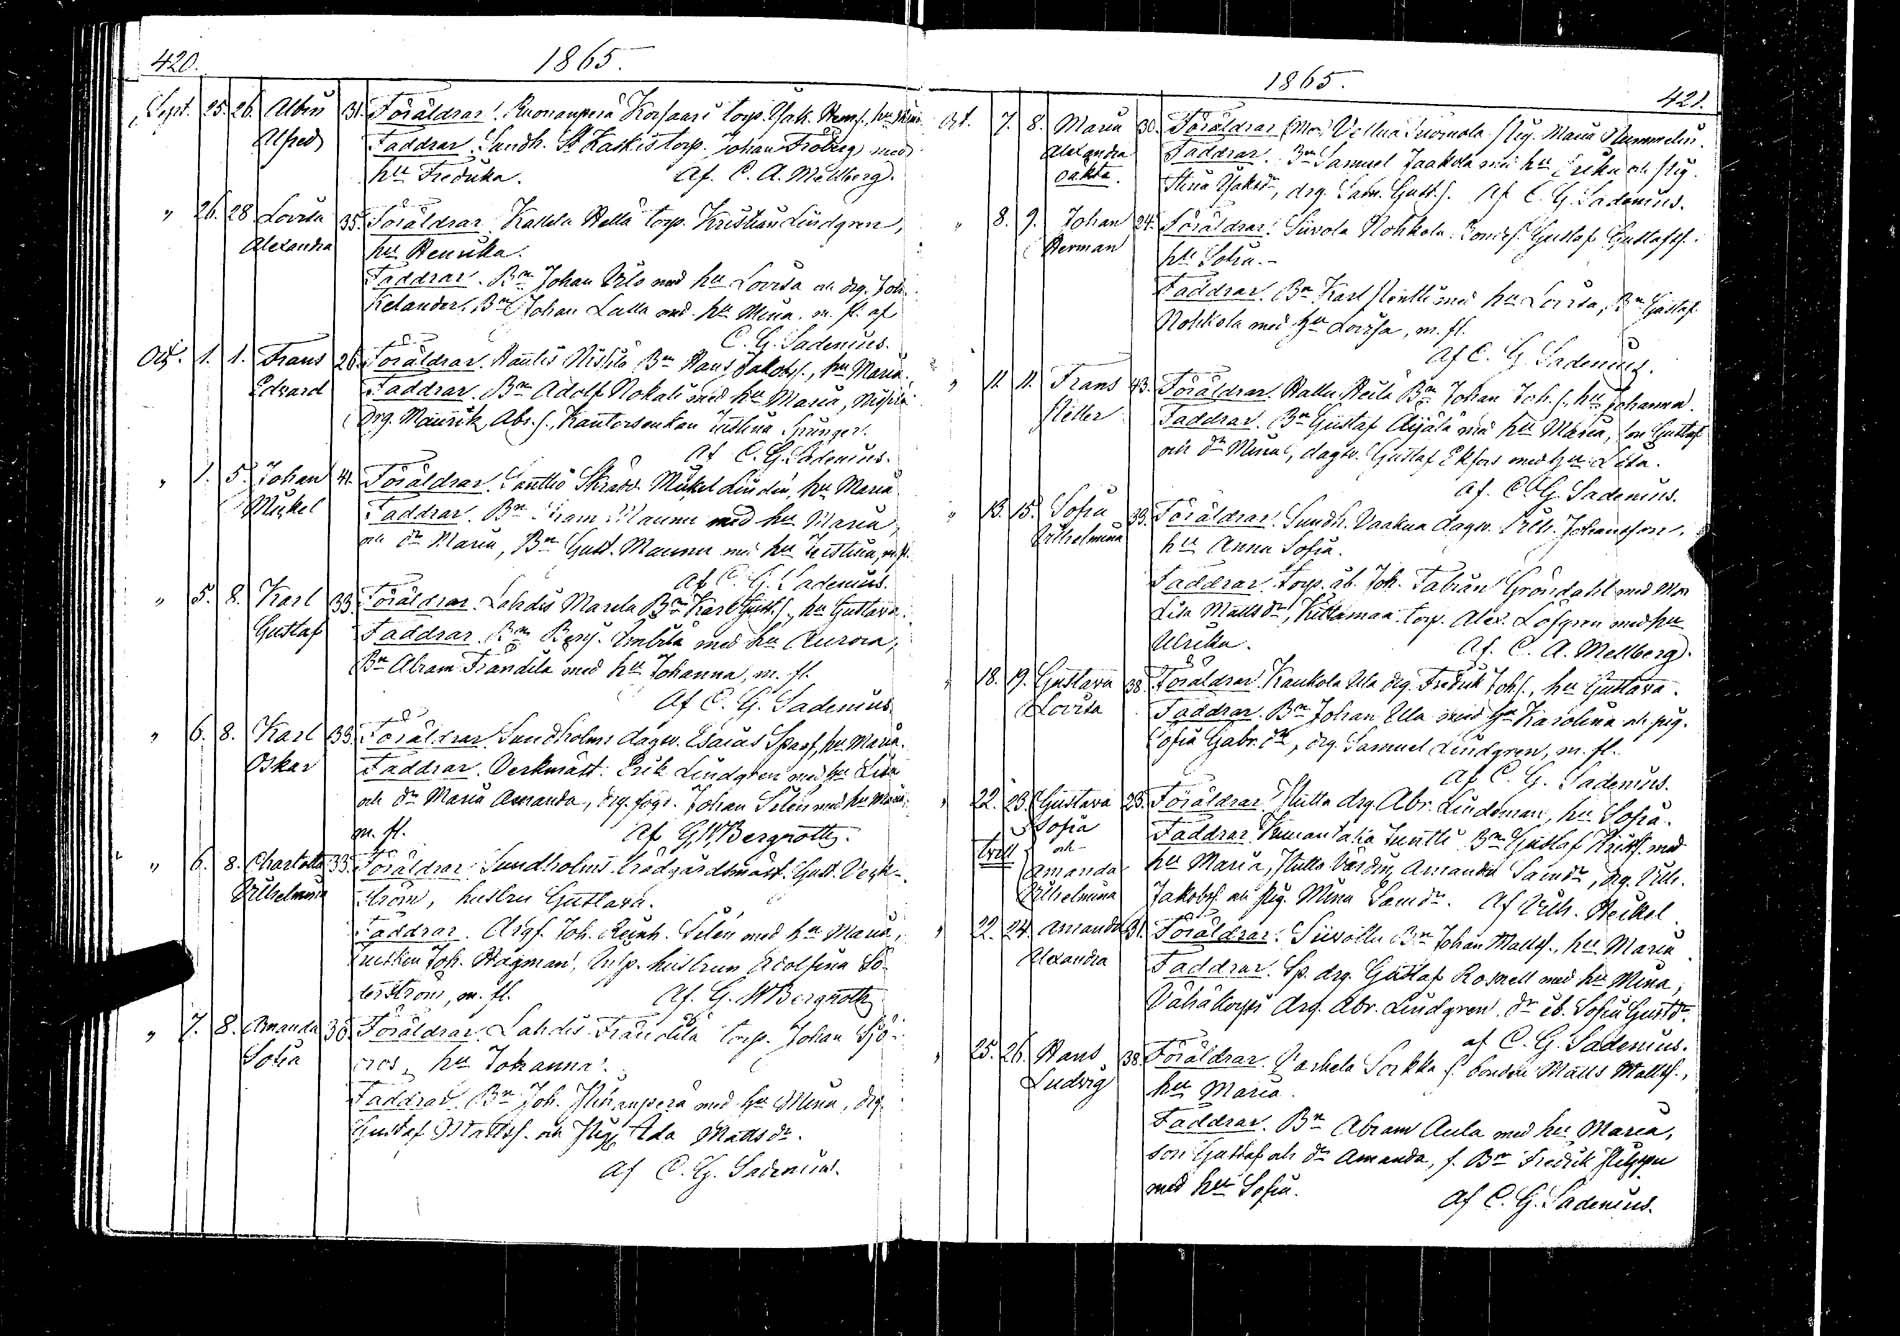 420.
1865.
Sept. 25. 26. Albin 31. Föräldrar. Korsaari torp. Jak. hu
Alfred Faddrar. Sundh. St Kaskis torp. Johan Fröberg med
hu Fredrika. Af C. A. Mellberg.
" 26. 28. Lovisa 35. Föräldrar. Kallela Hella torp. Kristian Lindgren,
Alexandra hu Henrika.
Faddrar. Bn Johan Ylo med hu Lovisa och drg. Joh.
Kelander, Bn Johan Lalla med hu Mina. m. fl. af
C. G. Sadenius.
Oct. 1. 1. Frans 26. Föräldrar. Hanlis Bn Hans Jakobs., hu Maria.
Edvard Faddrar. Bn Adolf Nokali med hu Maria,
drg. Maurik, Abr. s., Kantorsenkan Justina Springer.
Af C. G. Sadenius.
" 1. 5. Johan 41. Föräldrar. Santtio Skrädd. Mickel Lindén, hu Maria
Mickel Faddrar. Bn Maunu med hu Maria,
och dr Maria, Bn Gust. Maunu med hu Justina, m. fl.
af C. G. Sadenius.
" 5. 8. Karl 33. Föräldrar. Lahdis Marela Bn Karl Gusts., hu Gustava.
Gustaf Faddrar. Bn Benj. med hu Aurora,
Bn Abram Frändilä med hu Johanna, m. fl.
Af C. G. Sadenius
" 6. 8. Karl 33. Föräldrar. Sundholms dagsv. Esaias Sparf, hu Maria.
Oskar Faddrar. Verkmäst. Erik Lindgren med hu Lisa
och dr Maria Amanda, drg. fogd. Johan Selén med hu Maria
m. fl. Af G. W. Bergroth.
" 6. 8. Charlotta 33. Föräldrar. Sundholms trädgårdsmäst. Gust. Veck-
Vilhelmina ström, hustru Gustava.
Faddrar. Joh. Reinh. Selén med hu Maria,
Joh. Hagman, Insp. hustrun Adolfina Sö-
derström, m. fl. Af. G. W Bergroth
" 7. 8. Amanda 36. Föräldrar. Lahdis Frändilä torp. Johan Sjö-
Sofia ros, hu Johanna.
Faddrar. Bn Joh. med hu Mina, drg.
Gustaf Mattss. och Pig. Ada Matts dr.
af C. G. Sadenius.
1865.
421.
Oct. 7. 8. Maria 30. Föräldrar (Mor) Vellua Suomola Pig. Maria Nummelin.
Alexandra Faddrar. Bn Samuel Jaakola med hu Erika och Pig.
oäkta. Stina Jaksdr, drg. Sam. Gust. s. Af C. G. Sadenius.
" 8. 9. Johan 24. Föräldrar. Siivola Nohkola Bondes. Gustaf Gustafss.
Herman hu Sofia.
Faddrar. Bn Karl med hu Lovisa, Bn Gustaf
Nohkola med hu Lovisa, m. fl.
Af C. G. Sadenius.
" 11. 11. Frans 43. Föräldrar. Hallu Heila Bn Johan Joh. s., hu Johanna.
Faddrar. Bn Gustaf Äijälä med hu Maria, son Gustaf
och dr Mina, dagsv. Gustaf Ekfors med hu Lisa.
af. C. G. Sadenius.
" 13. 15. Sofia 33. Föräldrar. Sundh. Vaakua dagsv. Vilh. Johansson,
Vilhelmina hu Anna Sofia.
Faddrar. Torp. äb. Joh. Fabian Gröndahl med Mor
Lisa Matts dr, Kittamaa torp. Alex. Löfgren med hu
Ulrika. Af. C. A. Mellberg.
" 18. 19. Gustava 38. Föräldrar. Kaukola Ula drg. Fredrik Joh. s., hu Gustava.
Lovisa Faddrar. Bn Johan Ella med hu Karolina och pig.
Sofia Gabr. dr, drg. Samuel Lindgren, m. fl.
Af C. G. Sadenius.
" 22. 23. Gustava 25. Föräldrar. Hutta drg. Abr. Lindeman, hu Sofia.
Sofia Faddrar. Suntti Bn Gustaf med
tvill och hu Maria, Hutta Värdin. Amanda Sam dr, drg. Vilh.
Amanda Jakobss. och Pig. Mina Sam dr. Af Vilh. Heikel.
Vilhelmina
" 22. 24. Amanda 31. Föräldrar. Siivollu Bn Johan Mattss., hu Maria
Alexandra Faddrar. Sp. drg. Gustaf Rosnell med hu Mina,
Vähätorppi drg. Abr. Lindgren dr ib. Sofia Gustdr.
af C. G. Sadenius.
" 25. 26. Hans 38. Föräldrar. Vashela Sorkka f. bonden Matts Mattss.,
Ludvig hu Maria.
Faddrar. Bn Abram Aula med hu Maria,
son Gustaf och dr Amanda, f. Bn Fredrik
med hu Sofia. Af C. G. Sadenius.